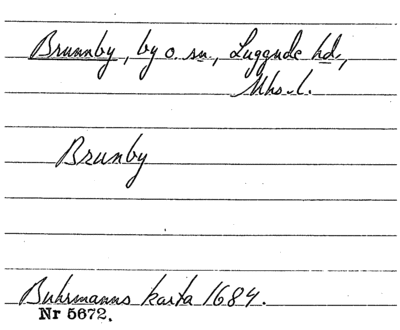 Brunnby, by o. sn., Luggude hd.,
Mhs. l.
Brunby
Buhrmanns karta 1684.
Nr 5672.